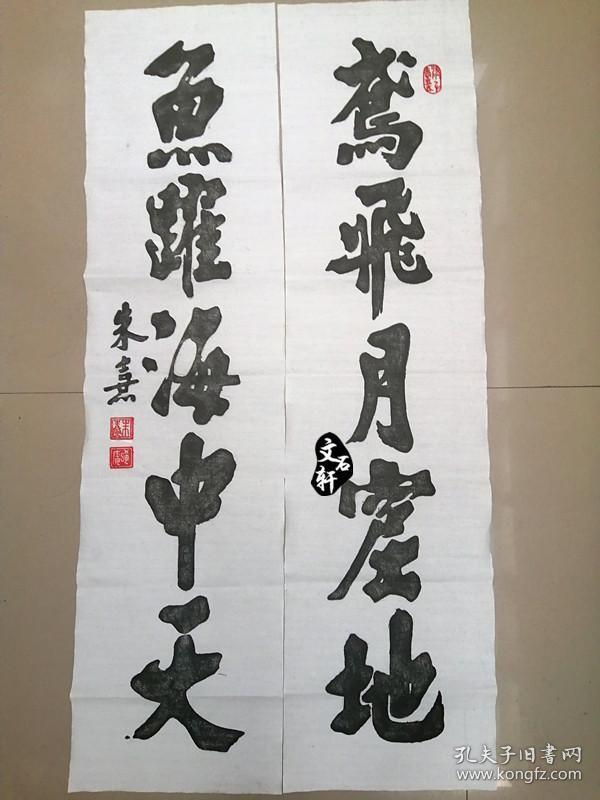 鳶飛月窟地
魚躍海中天
朱熹
文石轩
孔夫子旧书网
www.kongfz.com